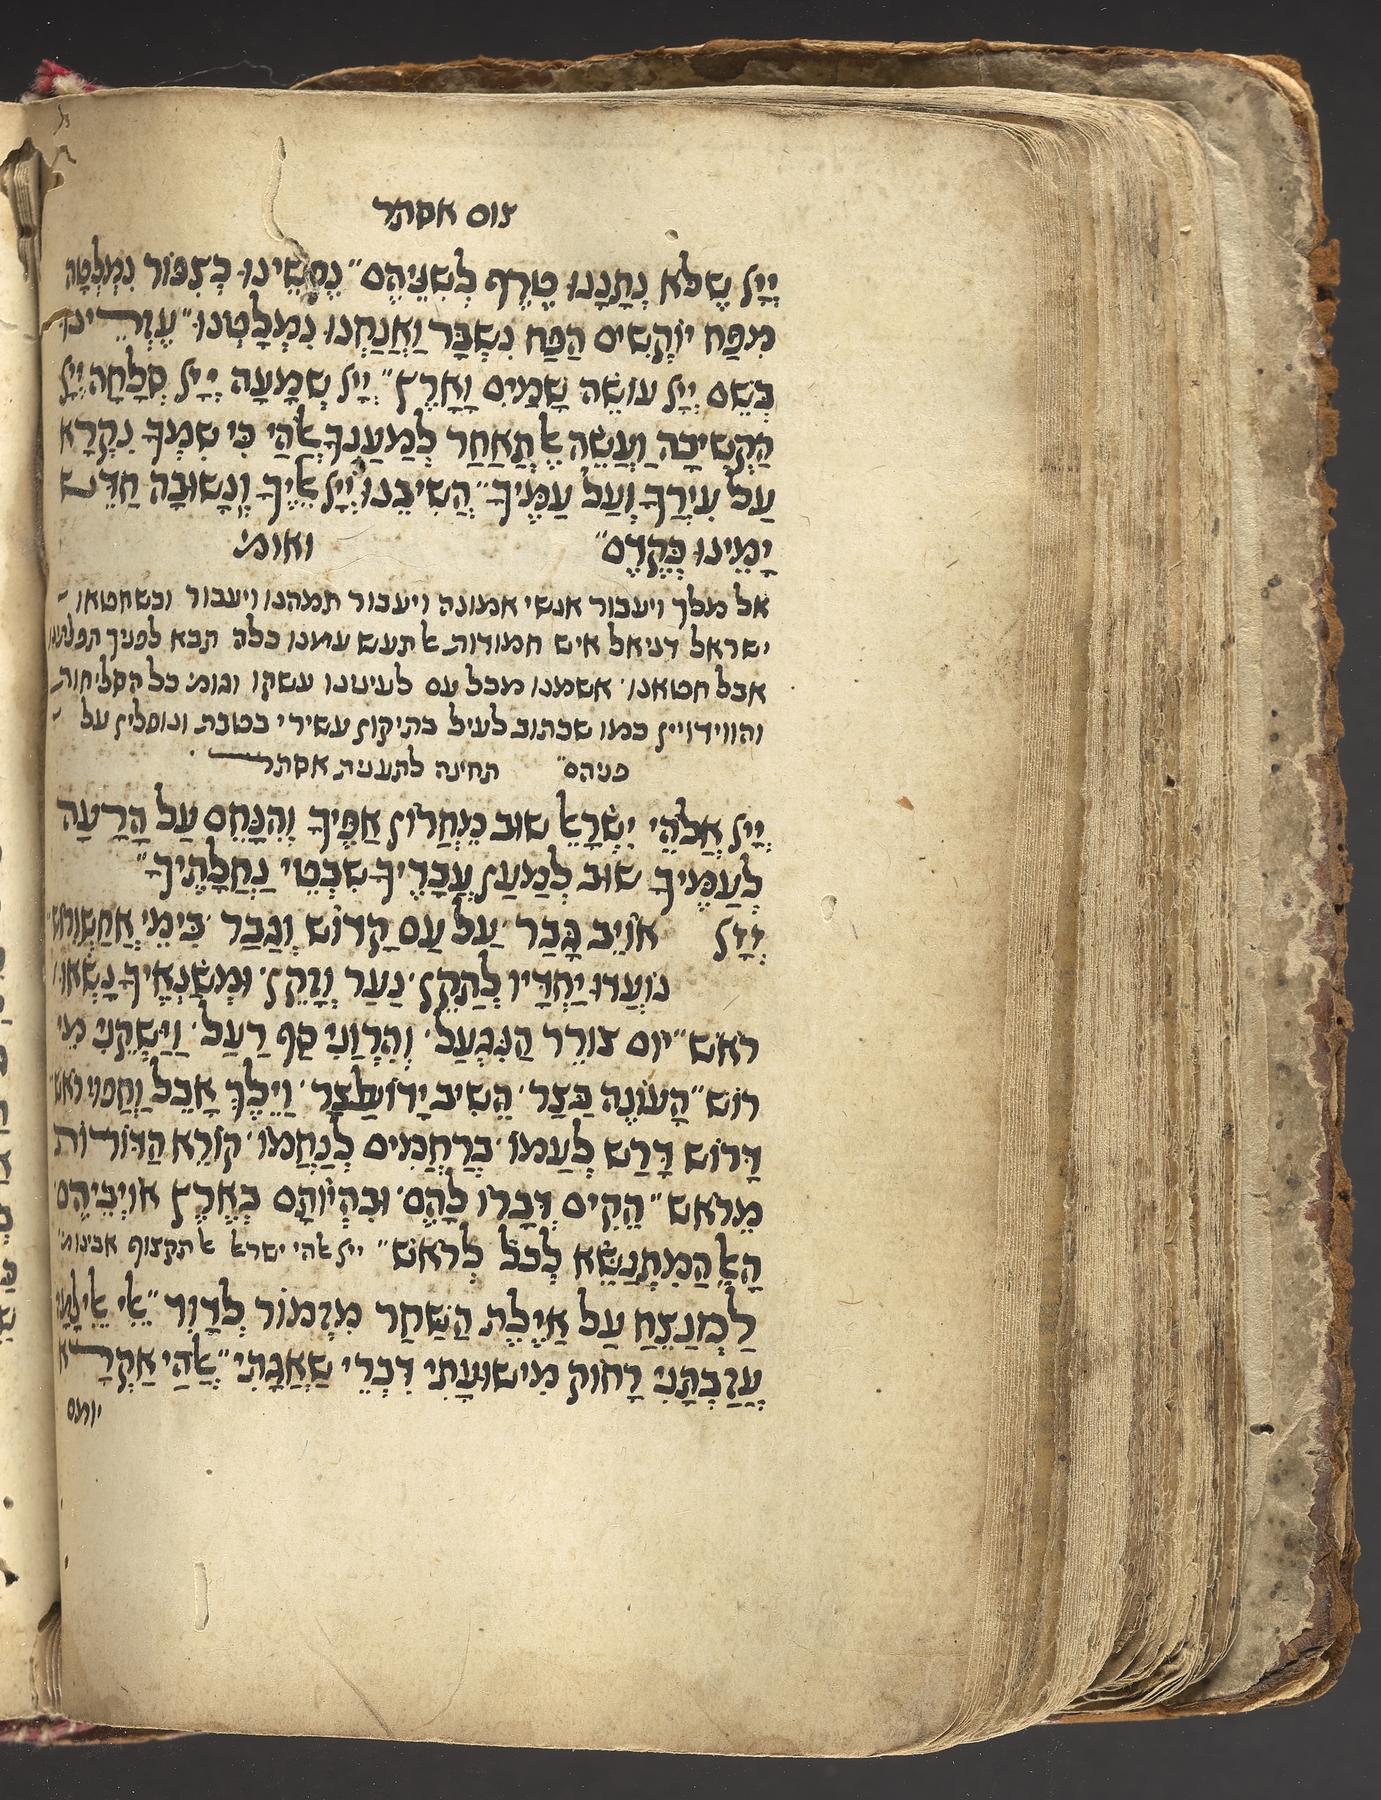 צום אסתר
יְיָל שֶׁלֹא נְתָנָנוּ טֶרֶף לְשִׁנֵּיהֶם״ נַפְשֵׁינוּ כְּצִפּוֹר נִמְלְטָה
מִפַּח יוֹקְשִׁים הַפַּח נִשְׁבָּר וַאֲנַחְנוּ נִמְלָטְנוּ״ עֶזְרֵינוּ
בְּשֵׁם יְיָל עוֹשֵׂה שָׁמַיִם וָאָרֶץ״ יְיָל שְׁמָעָה יְיָל סְלָחָה יְיָל
הַקְשִׁיבָה וַעֲשֵׂה אַל תְּאַחַר לְמַעַנְךָ אֱלֹהַי כִּי שִׁמְךָ נִקְרָא
עַל עִירְךָ וְעַל עַמֶּיךָ״ הֲשִׁיבֵנוּ יְיָל אֵלֶיךָ וְנָשׁוּבָה חַדֵּשׁ
יָמֵינוּ כְּקֶדֶם״ ואומ׳
אל מלך ויעבור אנשי אמונה ויעבור תמהנו ויעבור ובשחטאו
ישראל דניאל איש חמודות אל תעש עמנו כלה תבא לפניך תפלתנו
אבל חטאנו׳ אשמנו מכל עם לעינינו עשקו וגומ׳ כל הסליחות
והווידויין כמו שכתוב לעיל בתיקון עשירי בטבת ונופלין על
פניהם״ תחינה לתענית אסתר
יְיָל אֱלֹהֵי יִשְׂרָאֵל שׁוּב מֵחֲרוֹן אַפֶּיךָ וְהִנָּחֵם עַל הָרָעָה
לְעַמֶּיךָ שׁוּב לְמַעַן עֲבָדֶיךָ שִׁבְטֵי נַחֲלָתֶיךָ״
יְיָל אוֹיֵב גָּבַר׳ עַל עַם קָדוֹשׁ וְגָבַר׳ בִּימֵי אֲחַשְׁוֵרוֹשׁ
נוֹעֲדוּ יַחְדָּיו לְהַקֵּן׳ נַעַר וְזָקֵן׳ וּמְשַׂנְאֶיךָ נָשְׂאוּ
רֹאשׁ״ יוֹם צוֹרֵר הַנִּגְעַל׳ וְהִרְוַנִי סַף רַעַל׳ וַיַּשְׁקֵנִי מֵי
רוֹשׁ״ הָעוֹנֶה בַּצַּר׳ הֵשִׁיב יָדוֹ עַל צָר׳ וַיֵּלֶךְ אָבֵל וְחָפוּי רֹאשׁ
דָּרוֹשׁ דָּרַשׁ לְעַמוֹ׳ בְּרַחֲמִים לְנַחֲמוֹ׳ קוֹרֵא הַדּוֹרוֹת
מֵרֹאשׁ״ הֵקִים דְּבָרוֹ לָהֶם׳ וּבִהְיוֹתָם בְּאֶרֶץ אוֹיְבֵיהֶם׳
הָאֵל הַמִּתְנַשֵּׂא לְכֹל לְרֹאשׁ״ ייל אלהי ישראל אל תקצוף אבינומ׳
לַמְנַצֵּחַ עַל אַיֶלֶת הַשַּׁחַר מִזְמוֹר לְדָוִד״ אֵלִי אֵלִי לָמָה
עֲזַבְתָּנִי רָחוֹק מִישׁוּעָתִי דִּבְרֵי שַׁאֲגָתִי״ אֱלֹהַי אֶקְרָא
יומם